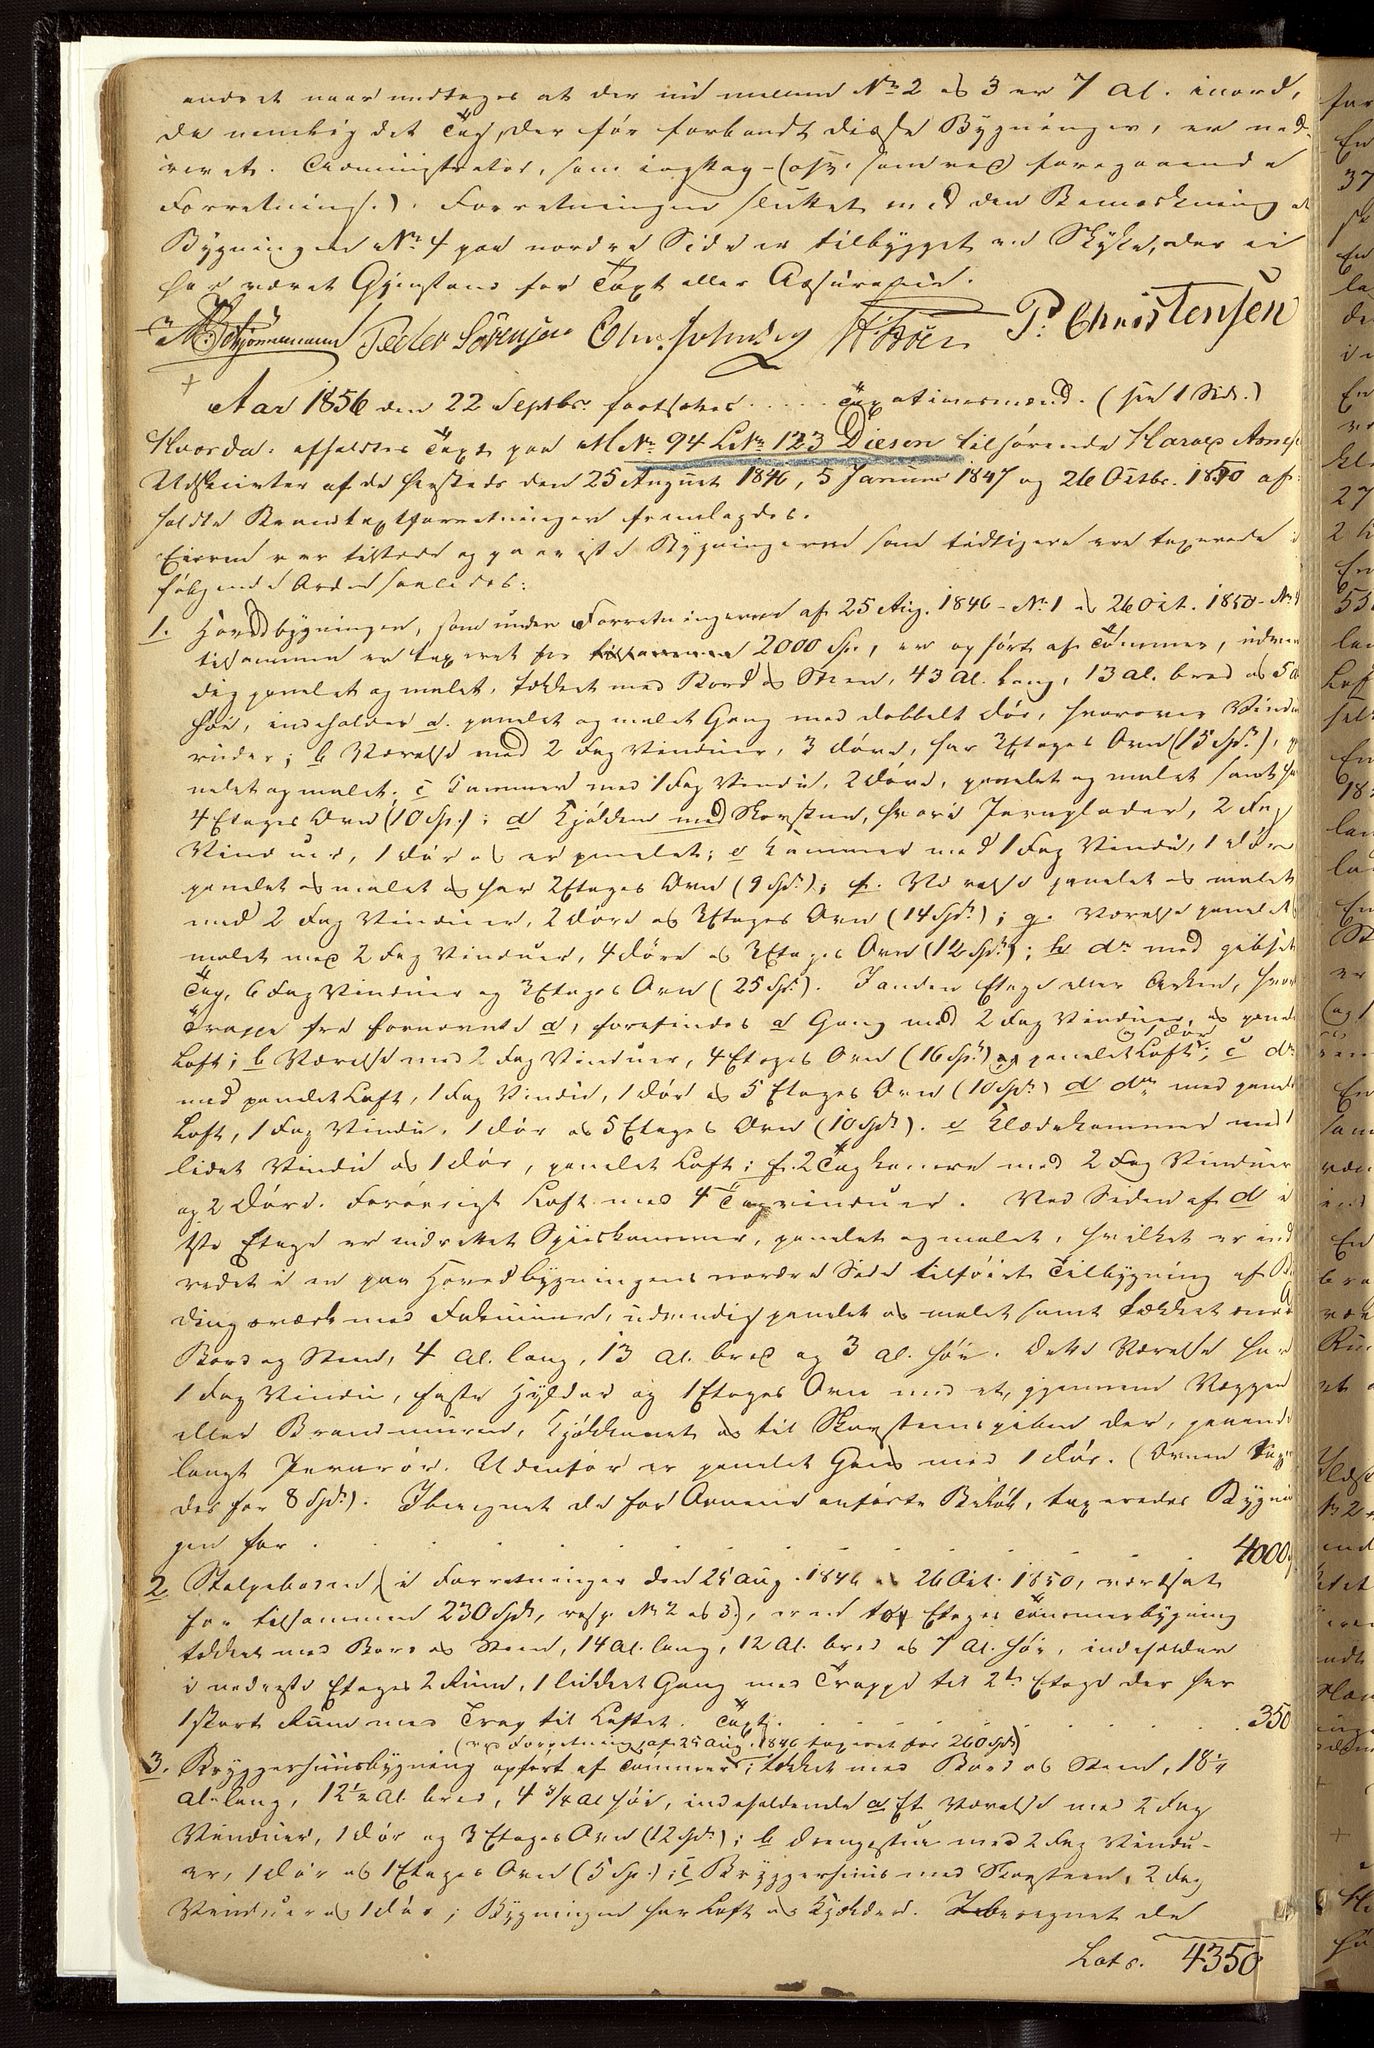 andret naar undtages at der nu mellem No 2 og 3 er 7 Al. inord,
da nemlig det Tag, der før forbandt disse Bygninger, er ned-
revet. Administrator, som iagttog - (osv. som ved foregaaende
Forretning.). Forretningen sluttet med den Bemærkning at
Bygningen No 4 paa nordre Side er tilbygget et Skykle, der ei
har været Gjenstand for Taxt eller Assurance.
Peder Sörensen Chr. Johnsen P. Christensen
Aar 1856 den 22 Septbr. fortsattes ..... Taxationsmænd. (see 1 Side.)
Hvorda: afholdtes Taxt paa MNo 94 LNo 123 Diesen tilhørende Harald
Udskrifter af de herstedes den 25 August 1846, 5 Januar 1847 og 26 Octbr. 1850 af-
holdte Brandtaxtforretninger fremlagdes.
Eieren var tilstede og paaviste Bygningerne som tidligere ere taxerede i
følgende Orden saaledes:
1. Hovedbygningen, som under Forretningerne af 25 Aug. 1846 - No 1 og 26 Oct. 1850 - No 1
tilsammen er taxeret for 2000 Spd, er opført af Tømmer, udven-
dig panelet og malet, tækket med Bord og Steen, 43 Al. lang, 13 Al. bred og 5 Al
høi, indeholder a. panelet og malet Gang med dobbelt Dør, hvorover Vindu
ruder; b Værelse med 2 Fag Vinduer, 3 Døre, har 3 Etages Ovn (15 Spd.), pa
nelet og malet; c Kammer med 1 Fag Vindu, 2 Døre, panelet og malet samt har
4 Etages Ovn (10 Sp.); d Kjøkken med Skorsteen, hvori Jernplader, 2 Fag
Vinduer, 1 Dør og er panelet; e Kammer med 1 Fag Vindu, 1 Dør
panelet og malet og har 2 Etages Ovn (9 Spd.); f. Værelse panelet og malet
med 2 Fag Vinduer, 2 Døre og 3 Etages Ovn (14 Spd.); g. Værelse panelet
malet med 2 Fag Vinduer, 4 Døre og 3 Etages Ovn (12 Spd.); h do med gibset
Tag, 6 Fag Vinduer og 3 Etages Ovn (25 Sp.). I anden Etage eller Arken, hvor
Trappe fra fornævnte a, forefindes a Gang med 2 Fag Vinduer, og panelet
Loft; b Værelse med 2 Fag Vinduer, 4 Etages Ovn (16 Sp.) og panelet Loft og 1 Dør; c do
med panelet Loft, 1 Fag Vindu, 1 Dør og 5 Etages Ovn (10 Spd.) d do med panelet
Loft, 1 Fag Vindu, 1 Dør og 5 Etages Ovn (10 Spd). e Klædekammer med 1
lidet Vindu og 1 Dør, panelet Loft; f. 2 Tagkamre med 2 Fag Vinduer
og 2 Døre. Forøvrigt Loft med 4 Tagvinduer. Ved Siden af d i
1ste Etage er indrettet Spiiskammer, panelet og malet, hvilket er ind
redet i en paa Hovedbygningens nordre Side tilføiet Tilbygning af Bin
dingsværk med Fakmuur, udvendig panelet og malet samt tækket med
Bord og Steen, 4 Al. lang, 13 Al. bred og 3 Al. høi. Dette Værelse har
1 Fag Vindu, faste Hylder og 1 Etages Ovn med et, gjennem Væggen
eller Brandmuren, Kjøkkenet og til Skorsteenspiben der, gaaende
langt Jernrør. Udenfor er panelet Gang med 1 Dør. (Ovnen taxe
des for 8 Spd.). Iberegnet de for Ovnene anførte Beløb, taxeredes Bygnin
gen for . . . . . . . . 4000
2. Stolpeboden, (i Forretninger den 25 Aug. 1846 og 26 Oct. 1850, værdsat
for tilsammen 230 Spd, resp. No 2 og 3), er en to Etages Tømmerbygning
tækket med Bord og Steen, 14 Al. lang, 12 Al. bred og 7 Al. høi, indeholder
i nederste Etage 2 Rum, 1 lidet Gang med Trappe til 2den Etage der har
1 stort Rum med Trap til Loftet. Taxt. . . . . . . 350
(ved Forretning af 25 Aug. 1846 taxeret for 260 Spd)
3. Bryggerhuusbygning opført af Tømmer, tækket med Bord og Steen, 18 1/4
Al. lang, 12 1/2 Al. bred, 4 3/4 Al høi, indeholdende a Et Værelse med 2 Fag
Vinduer, 1 Dør og 3 Etages Ovn (12 Spd.); b Drengestue med 2 Fag Vindu-
er, 1 Dør og 1 Etages Ovn (5 Sp.); c Bryggerhuus med Skorsteen, 2 Fag
Vinduer og 1 Dør; Bygningen har Loft og Kjælder. Iberegnet de
Lats. 4350